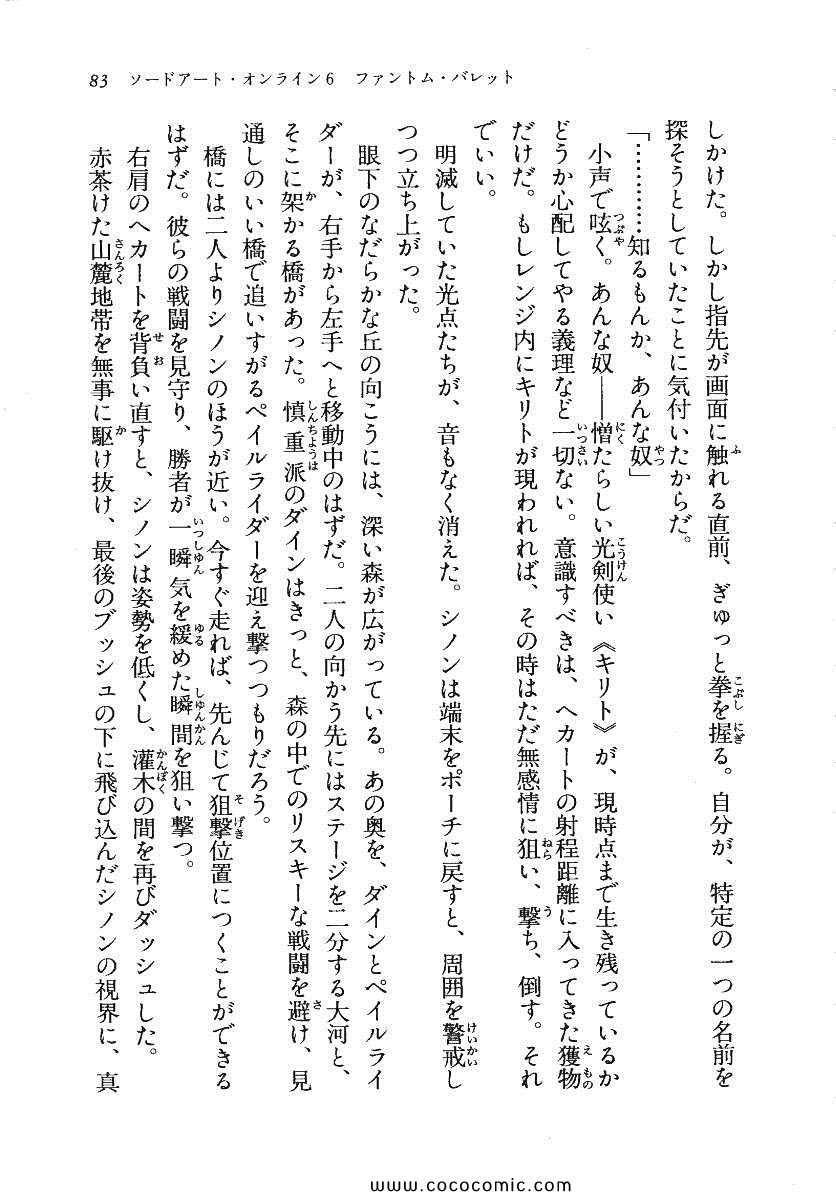 83　ソードアート・オンライン6　ファントム・バレット
しかけた。しかし指先が画面に触れる直前、ぎゅっと拳を握る。自分が、特定の一つの名前を
探そうとしていたことに気付いたからだ。
「…………知るもんか、あんな奴」
小声で呟く。あんな奴――憎たらしい光剣使い《キリト》が、現時点まで生き残っているか
どうか心配してやる義理など一切ない。意識すべきは、ヘカートの射程距離に入ってきた獲物
だけだ。もしレンジ内にキリトが現われれば、その時はただ無感情に狙い、撃ち、倒す。それ
でいい。
明滅していた光点たちが、音もなく消えた。シノンは端末をポーチに戻すと、周囲を警戒し
つつ立ち上がった。
眼下のなだらかな丘の向こうには、深い森が広がっている。あの奥を、ダインとペイルライ
ダーが、右手から左手へと移動中のはずだ。二人の向かう先にはステージを二分する大河と、
そこに架かる橋があった。慎重派のダインはきっと、森の中でのリスキーな戦闘を避け、見
通しのいい橋で追いすがるペイルライダーを迎え撃つつもりだろう。
橋には二人よりシノンのほうが近い。今すぐ走れば、先んじて狙撃位置につくことができる
はずだ。彼らの戦闘を見守り、勝者が一瞬気を緩めた瞬間を狙い撃つ。
右肩のヘカートを背負い直すと、シノンは姿勢を低くし、灌木の間を再びダッシュした。
赤茶けた山麓地帯を無事に駆け抜け、最後のブッシュの下に飛び込んだシノンの視界に、真
www.cococomic.com